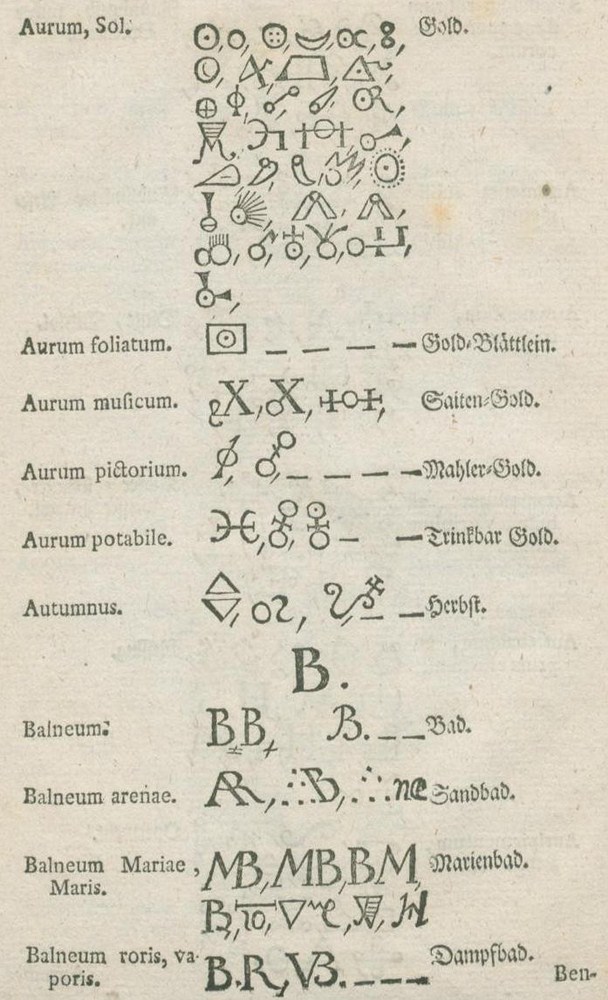 Aurum, Sol. Gold.
Aurum foliatum. Gold-Blättlein.
Aurum musicum. Saiten-Gold.
Aurum pictorium. Mahler-Gold.
Aurum potabile. Trinkbar Gold.
Autumnus. Herbst.
B.
Balneum. B B, B. Bad.
Balneum arenae. AR, B, Sandbad.
Balneum Mariae, MB, MB, BM, Marienbad.
Maris. B,
Balneum roris, va- B.R, VB. Dampfbad.
poris.
Ben-